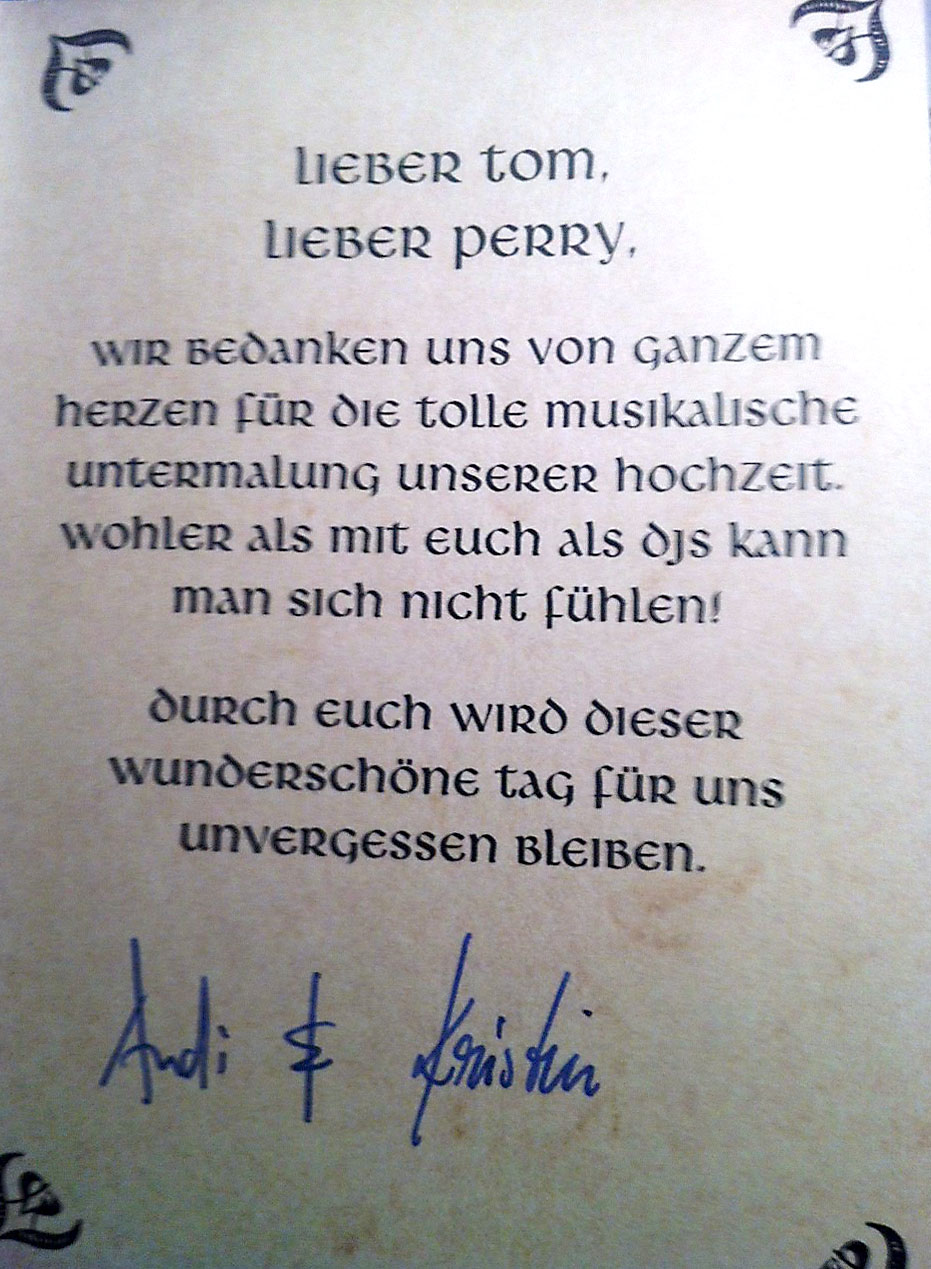 Lieber Tom,
Lieber Perry,
wir bedanken uns von ganzem
Herzen für die tolle musikalische
Untermalung unserer Hochzeit.
Wohler als mit Euch als DJs kann
man sich nicht fühlen!
Durch Euch wird dieser
wunderschöne Tag für uns
unvergessen bleiben.
Andi & Kristin